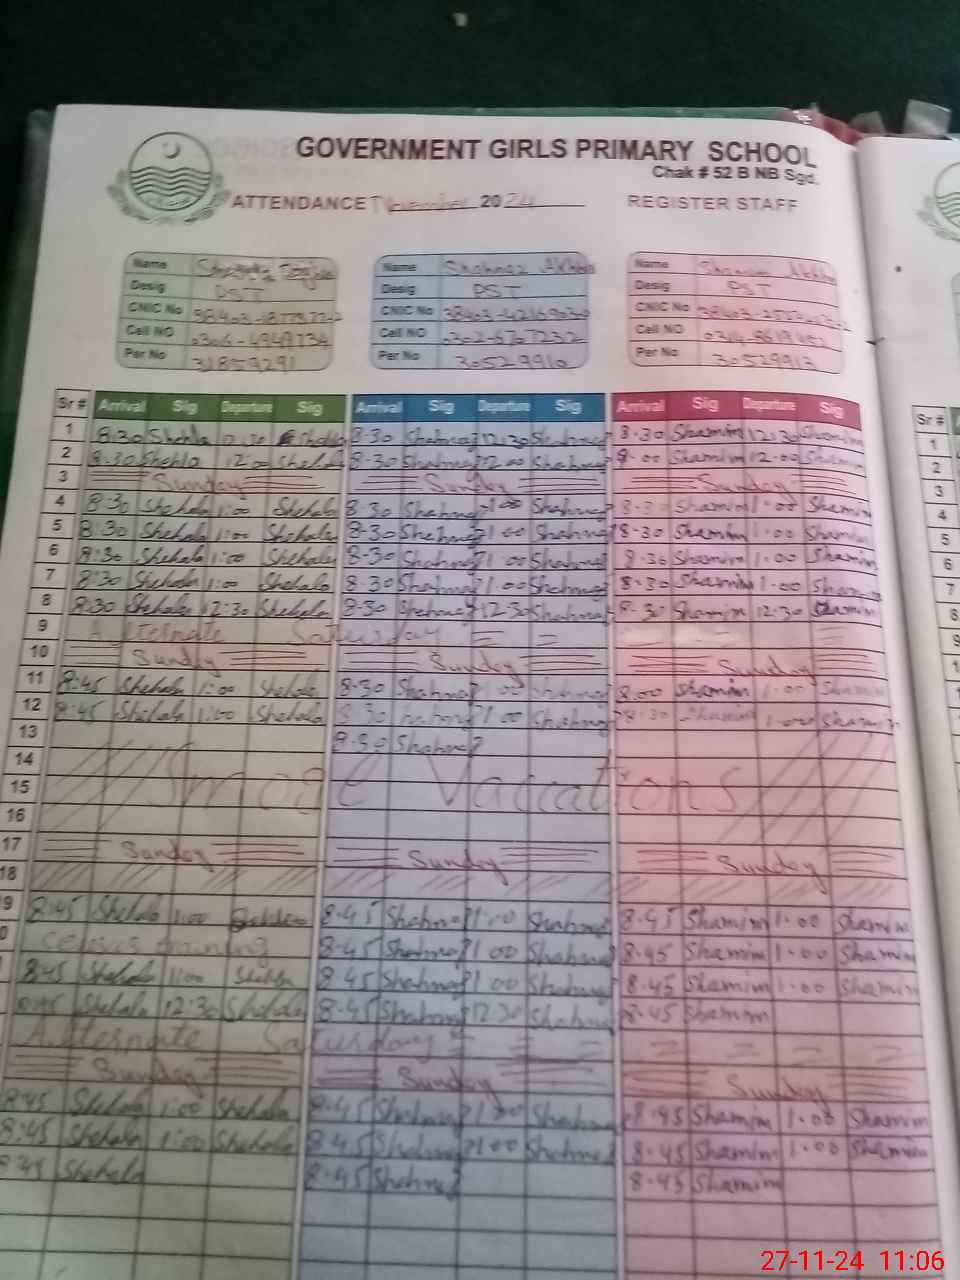 GOVERNMENT GIRLS PRIMARY SCHOOL
Chak # 52 B NB Sgd.
ATTENDANCE November 2024 REGISTER STAFF
Name Name Shahnaz Akhtar Name Shamim Akhtar
Desig PST Desig PST Desig PST
CNIC No CNIC No CNIC No
Cell NO 0306-4949734 Cell NO 0302-6707232 Cell NO
Per No 31859291 Per No 30529910 Per No 30529913
Sr # Arrival Sig Departure Sig Arrival Sig Departure Sig Arrival Sig Departure Sig Sr #
1 8:30 Shehla 12:30 8-30 Shahnaz 12-30 Shahnaz 8-30 Shamim 12-30 Shamim 1
2 8:30 Shehla 12:00 Shehala 8-30 Shahnaz 12-00 Shahnaz 8-00 Shamim 12-00 Shamim 2
3 Sunday Sunday Sunday 3
4 8:30 Shehala 1:00 Shehala 8-30 Shahnaz 1-00 Shahnaz 8-30 Shamim 1-00 Shamim 4
5 8:30 Shehala 1:00 Shehala 8-30 Shahnaz 1-00 Shahnaz 8-30 Shamim 1-00 Shamim 5
6 8:30 Shehala 1:00 Shehala 8-30 Shahnaz 1-00 Shahnaz 8-30 Shamim 1-00 Shamim 6
7 8:30 Shehala 1:00 Shehala 8-30 Shahnaz 1-00 Shahnaz 8-30 Shamim 1-00 Shamim 7
8 8:30 Shehala 12:30 Shehala 8-30 Shahnaz 12-30 Shahnaz 8-30 Shamim 12-30 Shamim 8
9 Alternate Saturday 9
10 Sunday Sunday Sunday
11 8:45 Shehala 1:00 Shehala 8-30 Shahnaz 1-00 Shahnaz 8-00 Shamim 1-00 Shamim
12 8:45 Shehala 1:00 Shehala 8-30 Shahnaz 1-00 Shahnaz 8-30 Shamim 1-00 Shamim
13 8-30 Shahnaz
14
15 Smog Vacations
16
17 Sunday Sunday Sunday
18
9 8:45 Shehala 1:00 8-45 Shahnaz 1:00 Shahnaz 8-45 Shamim 1-00 Shamim
0 census training 8-45 Shahnaz 1-00 Shahnaz 8-45 Shamim 1-00 Shamim
8:45 Shehala 1:00 Shehla 8-45 Shahnaz 1-00 Shahnaz 8-45 Shamim 1-00 Shamim
8:45 Shehala 12:30 Shehala 8-45 Shahnaz 12-30 Shahnaz 8-45 Shamim
Alternate Saturday
Sunday Sunday Sunday
8:45 Shehala 1:00 Shehala 8-45 Shahnaz 1-00 Shahnaz 8-45 Shamim 1-00 Shamim
8:45 Shehala 1:00 Shehala 8-45 Shahnaz 1-00 Shahnaz 8-45 Shamim 1-00 Shamim
8:45 Shehala 8-45 Shahnaz 8-45 Shamim
27-11-24 11:06